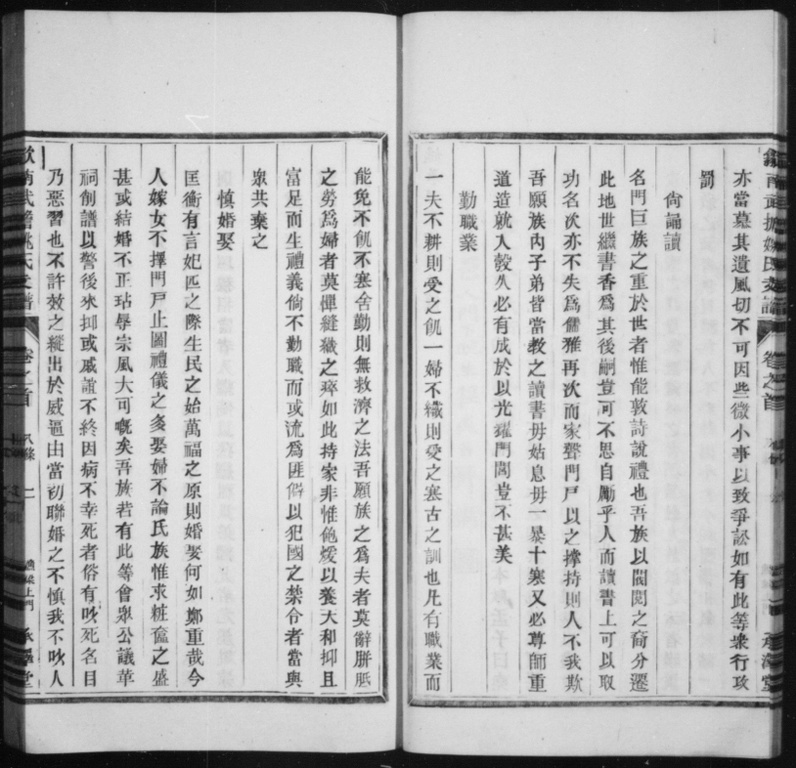 亦當慕其遺風切不可因些微小事以致爭訟如有此等衆行攻
罰
尙誦讀
名門巨族之重於世者惟能敦詩說禮也吾族以閥閱之裔分遷
此地世繼書香爲其後嗣豈可不思自勵乎人而讀書上可以取
功名次亦不失爲儒雅再次而家聲門戸以之撑持則人不我欺
吾願族內子弟皆當教之讀書毋姑息毋一暴十寒又必尊師重
道造就人彀久必有成於以光耀門閭豈不甚美
勤職業
一夫不耕則受之飢一婦不織則受之寒古之訓也凡有職業而
能免不飢不寒舍勤則無救濟之法吾願族之爲夫者莫辭胼胝
之勞爲婦者莫憚縫織之瘁如此持家非惟飽煖以養天和抑且
富足而生禮義倘不勤職而或流爲匪僻以犯國之禁令者當與
衆共棄之
慎婚娶
匡衡有言妃匹之際生民之始萬福之原則婚娶何如鄭重哉今
人嫁女不擇門戸止圖禮儀之多娶婦不論氏族惟求粧奩之盛
甚或結婚不正玷辱宗風大可嘅矣吾族若有此等會衆公議革
祠削譜以警後來抑或戚誼不終因病不幸死者俗有吹死名目
乃惡習也不許效之縱出於威逼由當初聯婚之不慎我不吹人
卷之首
八條
二
承澤堂